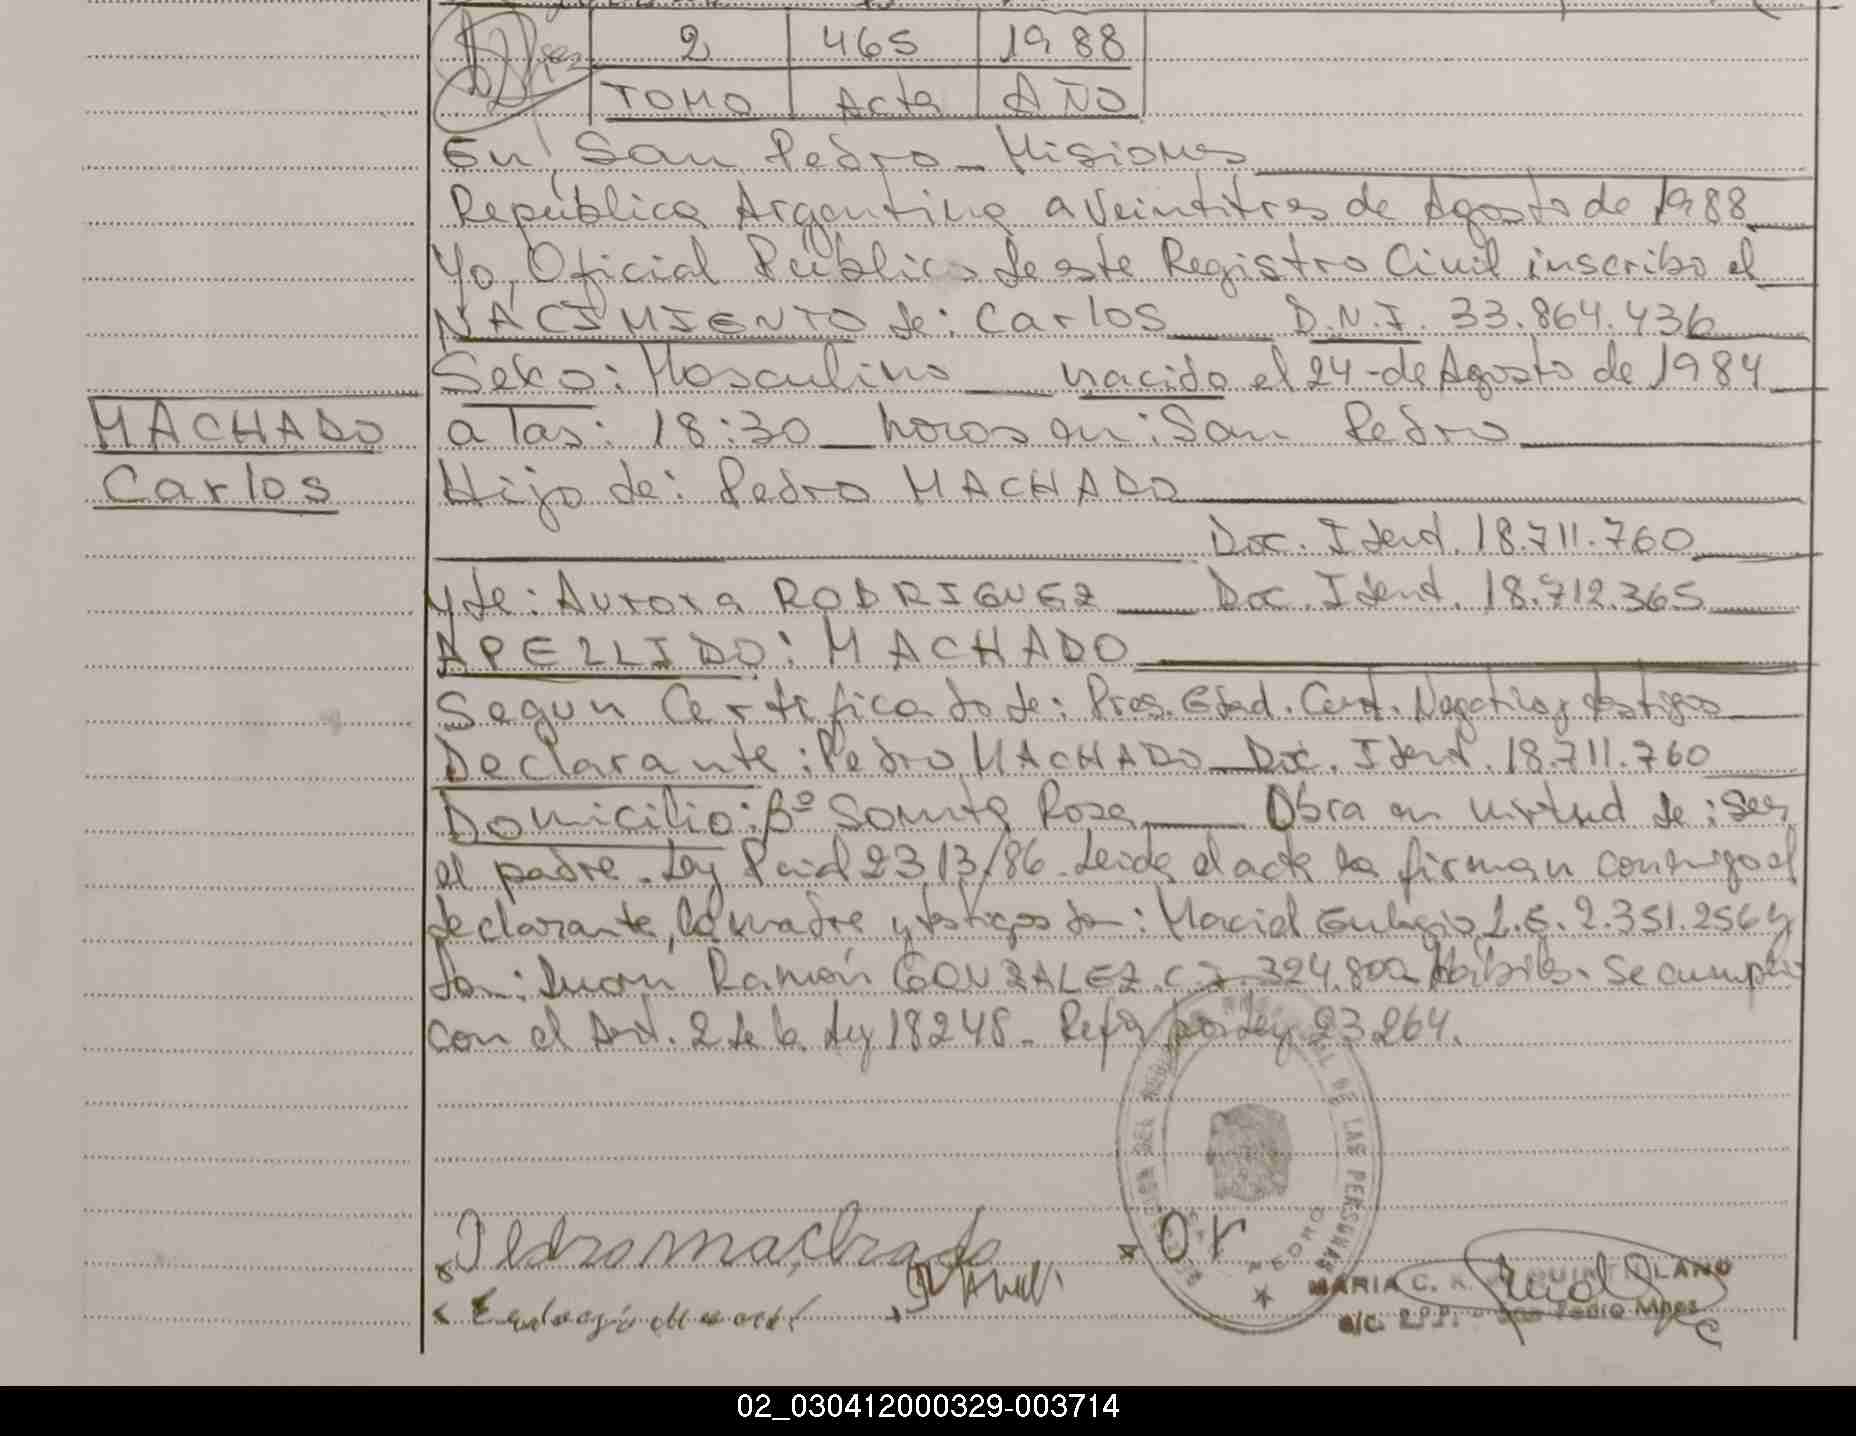 2 465 1988
TOMO Acta AÑO
En San Pedro - Misiones
República Argentina a Veintitres de Agosto de 1988
Yo, Oficial Público de este Registro Civil inscribo el
NACIMIENTO de: Carlos D.N.I. 33.864.436
Sexo: Masculino nacido el 24 de Agosto de 1984
MACHADO
a las: 18:30 horas en: San Pedro
Carlos
Hijo de: Pedro MACHADO
Doc. Ident. 18.711.760
y de: Aurora RODRIGUEZ Doc. Ident. 18.712.365
APELLIDO: MACHADO
Segun Certificado de: Pres. Edad. Cert. Negativo y testigos
Declarante: Pedro MACHADO Doc. Ident. 18.711.760
Domicilio: Bº Santa Rosa Obra en virtud de: Ser
el padre. Ley 2313/86. Leida el acta la firman conmigo el
declarante, la madre y testigos Don: L.E. 2.351.256 y
Don: Juan Ramón GONZALEZ C.I. 324.802 Habiles. Se cumplio
con el Art. 2 de la Ley 18248. por Ley 23264.
DEL DE LAS PERSONAS
PEDRO
Pedro machado
x O r
MARIA C. QUINTILANO
a/c. San Pedro Mnes